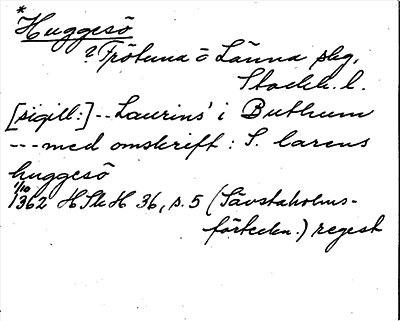 *
Huggesö
? Frötuna o Länna skg,
Stockh. l.
[sigill:] -- Laurins' i Buthum
--- med omskrift: S. larens
huggesö
1/10
1362 HSH 36, s. 5 (Sävstaholms-
förteckn.) regest